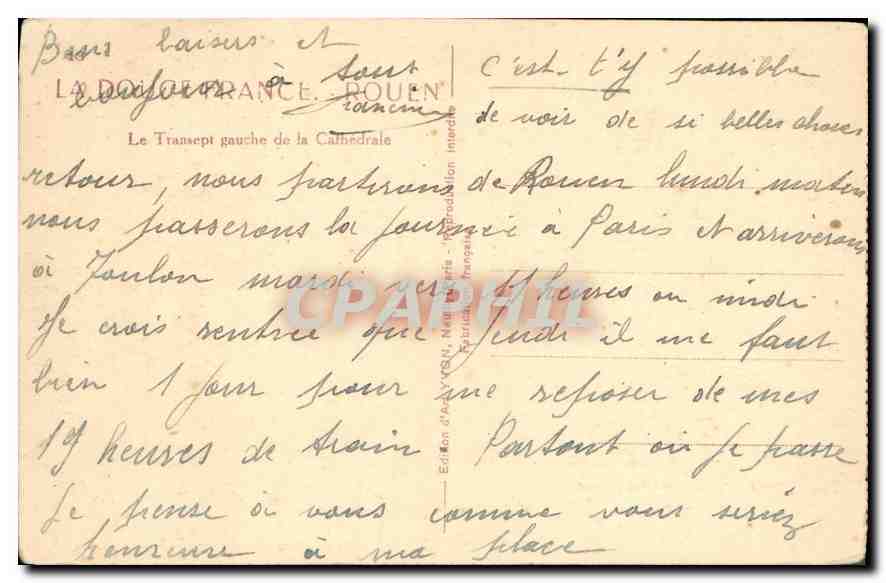 Bons baisers et
bonjour à tout
Francine
LA DOUCE FRANCE. - ROUEN
Le Transept gauche de la Cathédrale
c'est-t'y possible
de voir de si belles choses
retour, nous partirons de Rouen lundi matin
nous passerons la journée à Paris et arriverons
à Toulon mardi vers 11 heures ou midi
Je crois rentrée que jeudi il me faut
bien 1 jour pour me reposer de mes
19 heures de train Partout où je passe
je pense à vous comme vous seriez
heureuse à ma place
Edition d'Art YVON, Neuilly-Paris - Reproduction interdite
Fabrication française
CPAPHIL